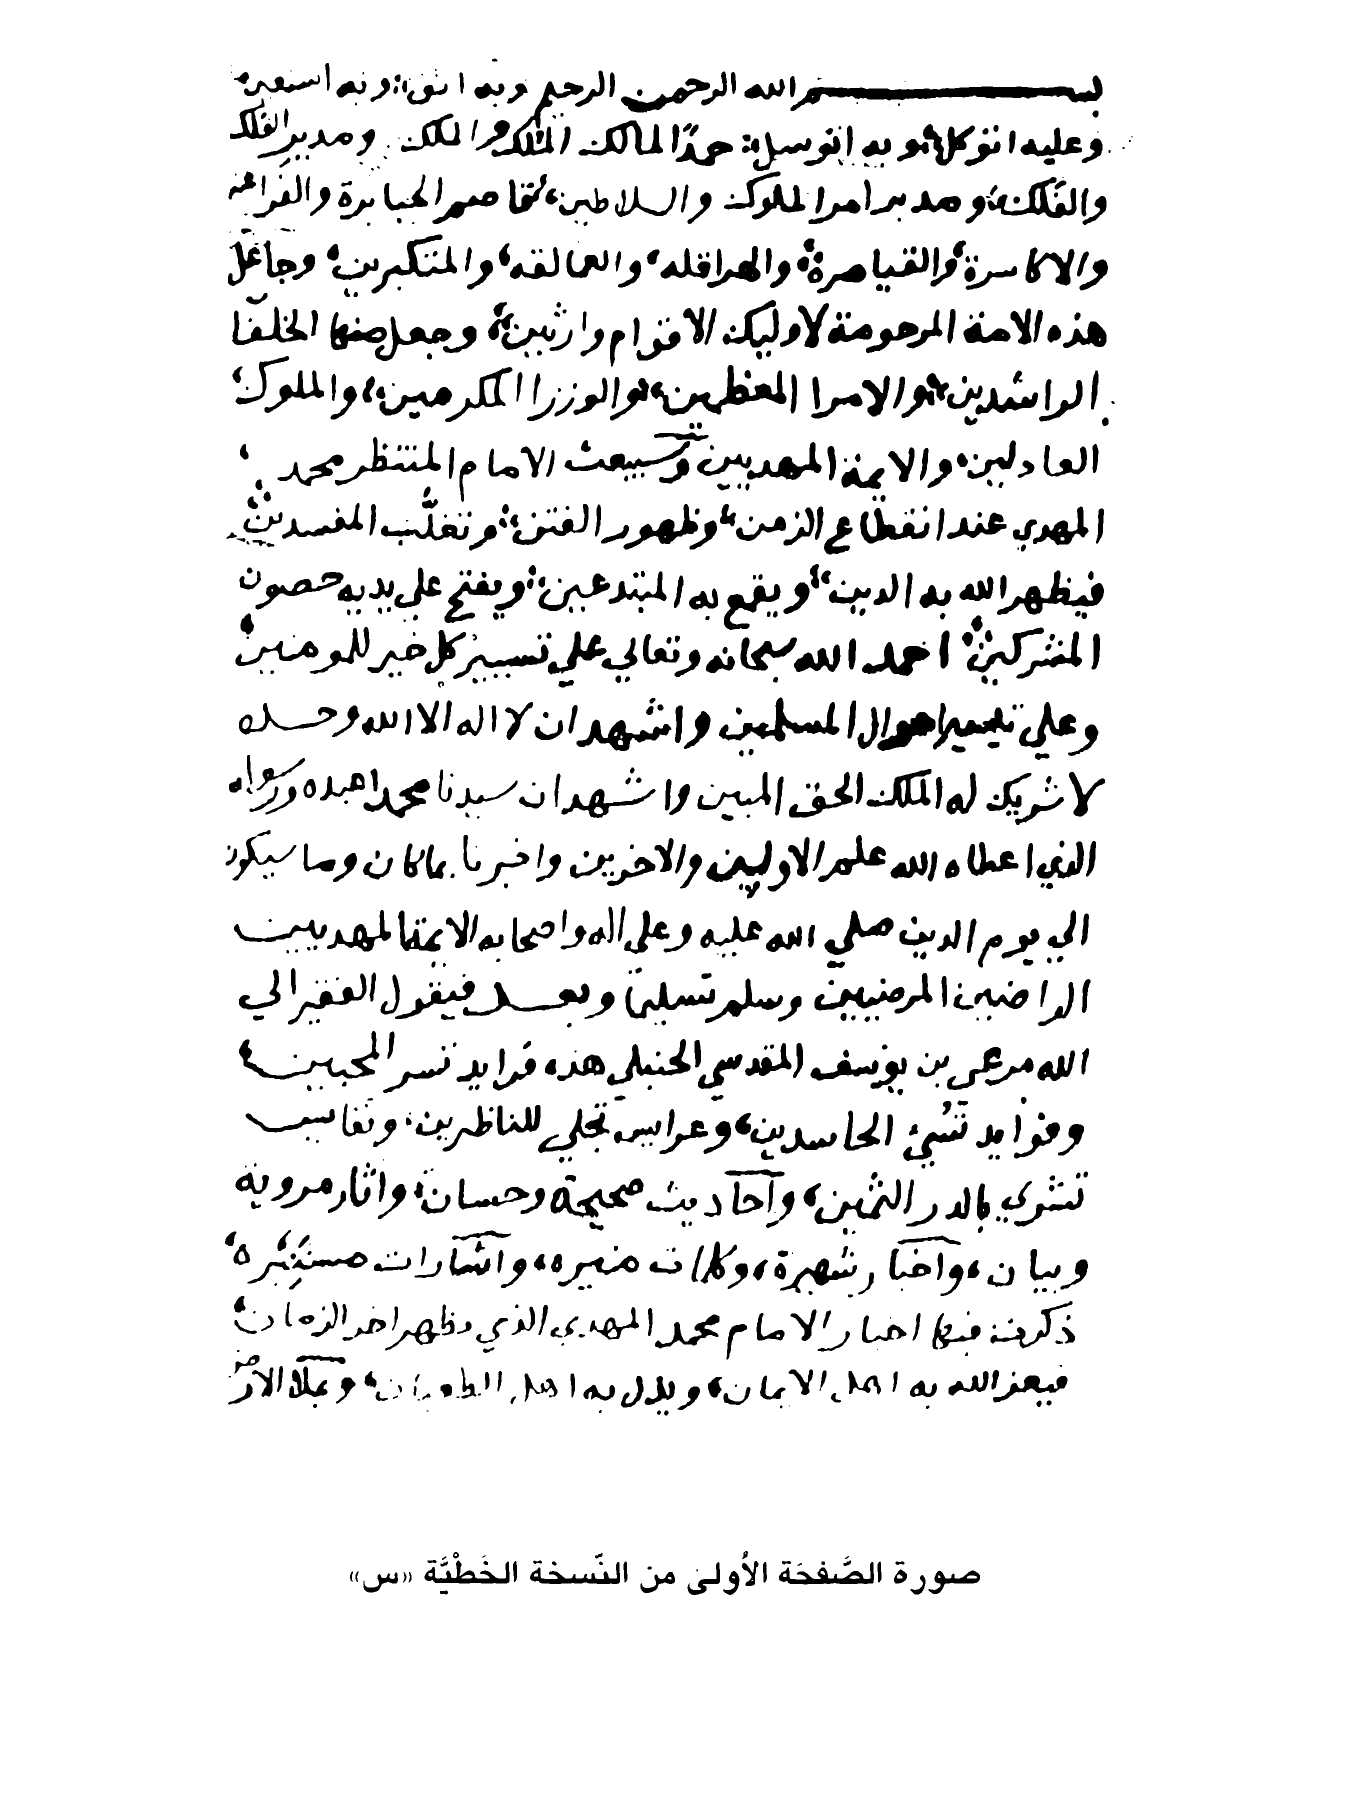 بسم الله الرحمن الرحيم وبه اثق وبه استعين
وعليه اتوكل وبه اتوسل حمدًا لمالك الملك والملك ومدير الفلك
والفلك ومدبر امر الملوك والسلاطين قاصم الجبابرة والفراعنه
والاكاسرة والقياصرة والهراقله والعمالقه والمتكبرين وجاعل
هذه الامة المرحومة لاوليك الاقوام وارثين وجعل منها الخلفا
الراشدين والامرا المعظمين والوزرا المكرمين والملوك
العادلين والايمة المهديين وسيبعث الامام المنتظر محمد
المهدي عند انقطاع الزمن وظهور الفتن وتغلُّب المفسدين
فيظهر الله به الدين ويقمع به المبتدعين ويفتح علي يديه حصون
المشركين احمد الله سبحانه وتعالي علي تيسير كل خير للمومنين
وعلي تيسير احوال المسلمين واشهد ان لا اله الا الله وحده
لا شريك له الملك الحق المبين واشهد ان سيدنا محمدا عبده ورسوله
الذي اعطاه الله علم الاولين والاخرين واخبرنا بما كان وما سيكون
الي يوم الدين صلي الله عليه وعلى اله واصحابه الايمة المهديين
الراضين المرضيين وسلم تسليما وبعد فيقول الفقير الي
الله مرعي بن يوسف المقدسي الحنبلي هذه فرايد تسر المحبين
وفوايد تسُيئ الحاسدين وعرايس تجلي للناظرين ونفايس
تشري بالدر الثمين واحاديث صحيحة وحسان واثار مروية
وبيان واخبار شهيرة وكلمات منيره واشارات مستنيره
ذكرت فيها اخبار الامام محمد المهدي الذي يظهر اخر الزمان
فيعز الله به اهل الايمان ويذل به اهل الطغيان ويملا الارض
صورة الصَّفحَة الأولى من النّسخة الخَطْيَّة «س»